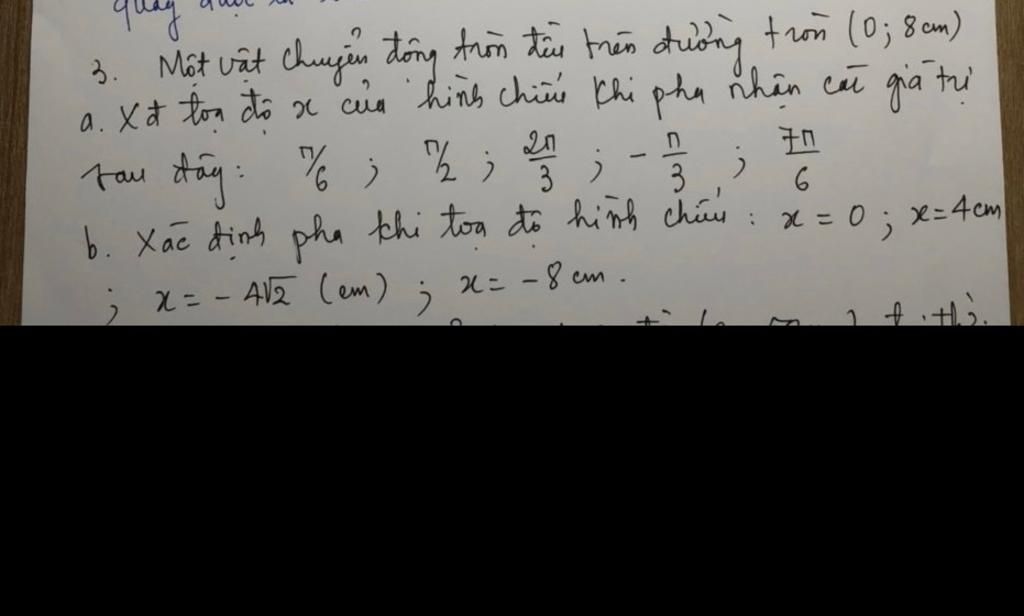 3. Một vật chuyển động tròn đều trên đường tròn (O; 8cm)
a. Xđ tọa độ x của hình chiếu khi pha nhận các giá trị
sau đây: π/6 ; π/2 ; 2π/3 ; -π/3 ; 7π/6
b. Xác định pha khi tọa độ hình chiếu : x = 0 ; x = 4cm
; x = - 4√2 (cm) ; x = - 8 cm .